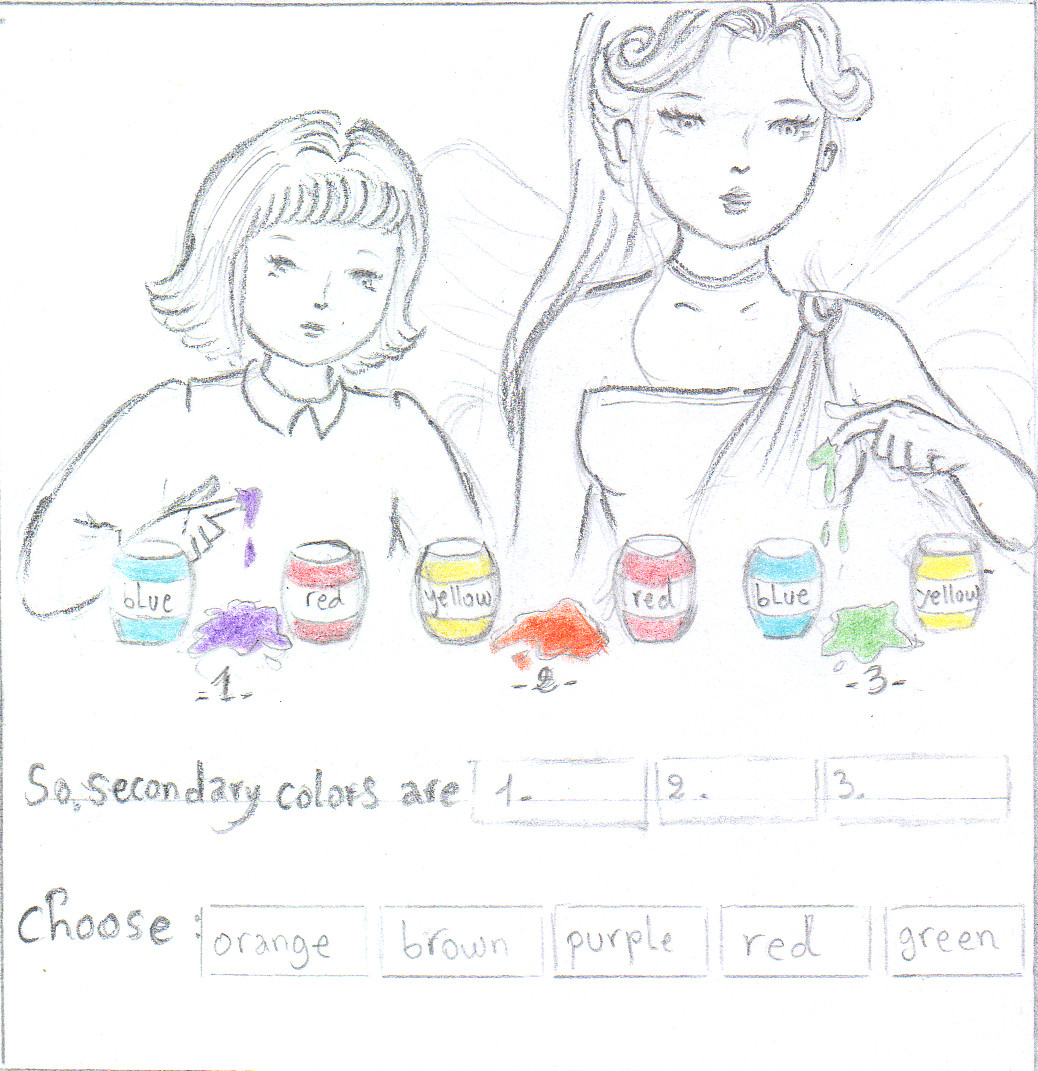 blue red yellow red blue yellow
-1- -2- -3-
So, secondary colors are 1. 2. 3.
Choose : orange brown purple red green